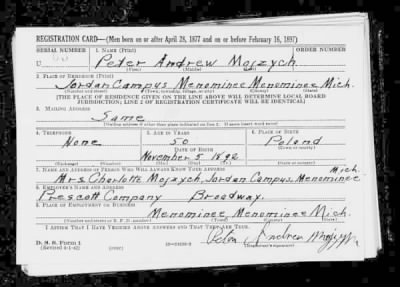 REGISTRATION CARD—(Men born on or after April 28, 1877 and on or before February 16, 1897)
SERIAL NUMBER 1. NAME (Print) ORDER NUMBER
Peter Andrew Mojzych
(First) (Middle) (Last)
2. PLACE OF RESIDENCE (Print)
Jordan Campus Menominee Menominee Mich.
(Number and street) (Town, township, village, or city) (County) (State)
[THE PLACE OF RESIDENCE GIVEN ON THE LINE ABOVE WILL DETERMINE LOCAL BOARD
JURISDICTION; LINE 2 OF REGISTRATION CERTIFICATE WILL BE IDENTICAL]
3. MAILING ADDRESS
Same
[Mailing address if other than place indicated on line 2. If same insert word same]
4. TELEPHONE 5. AGE IN YEARS 6. PLACE OF BIRTH
None 50 Poland
DATE OF BIRTH (Town or county)
November 5 1892
(Exchange) (Number) (Mo.) (Day) (Yr.) (State or country)
7. NAME AND ADDRESS OF PERSON WHO WILL ALWAYS KNOW YOUR ADDRESS Mich.
Mrs Charlotte Mojzych, Jordan Campus, Menominee
8. EMPLOYER'S NAME AND ADDRESS
Prescott Company Broadway.
9. PLACE OF EMPLOYMENT OR BUSINESS
Menominee Menominee Mich.
(Number and street or R. F. D. number) (Town) (County) (State)
I AFFIRM THAT I HAVE VERIFIED ABOVE ANSWERS AND THAT THEY ARE TRUE.
D. S. S. Form 1
(Revised 4-1-42) (over) Peter Andrew Mojzych